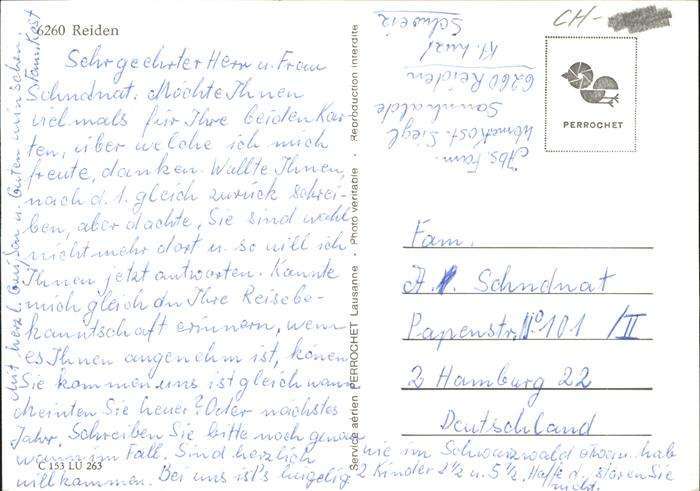 6260 Reiden
Sehr geehrter Herr u. Frau
Schndnat. Möchte Ihnen
vielmals für Ihre beiden Kar-
ten, über welche ich mich
freute, danken. Wollte Ihnen,
nach d. 1. gleich zurück schrei-
ben, aber dachte, Sie sind wohl
nicht mehr dort u. so will ich
Ihnen jetzt antworten. Kannte
mich gleich an Ihre Reisebe-
kanntschaft erinnern, wenn
es Ihnen angenehm ist, könen
Sie kommen, uns ist gleich wann
meinten Sie heuer? Oder nächstes
Jahr. Schreiben Sie bitte noch genau
wann im Fall. Sind herzlich
willkommen. Bei uns ist's hügelig
wie im Schwarzwald hab
2 Kinder 2 1/2 u. 5 1/2. stören Sie
nicht.
Mit herzl. Grüßen u. guten wünschen
Fam. Kost
C 153 LU 263
Service aérien PERROCHET Lausanne · Photo véritable · Reproduction interdite
Abs. Fam.
Werner Kost-Siegl
Sonnhalde
6260 Reiden
Kt. Luz.
Schweiz
CH-
PERROCHET
Fam.
A. Schndnat
Papenstr. No 101 /II
2 Hamburg 22
Deutschland